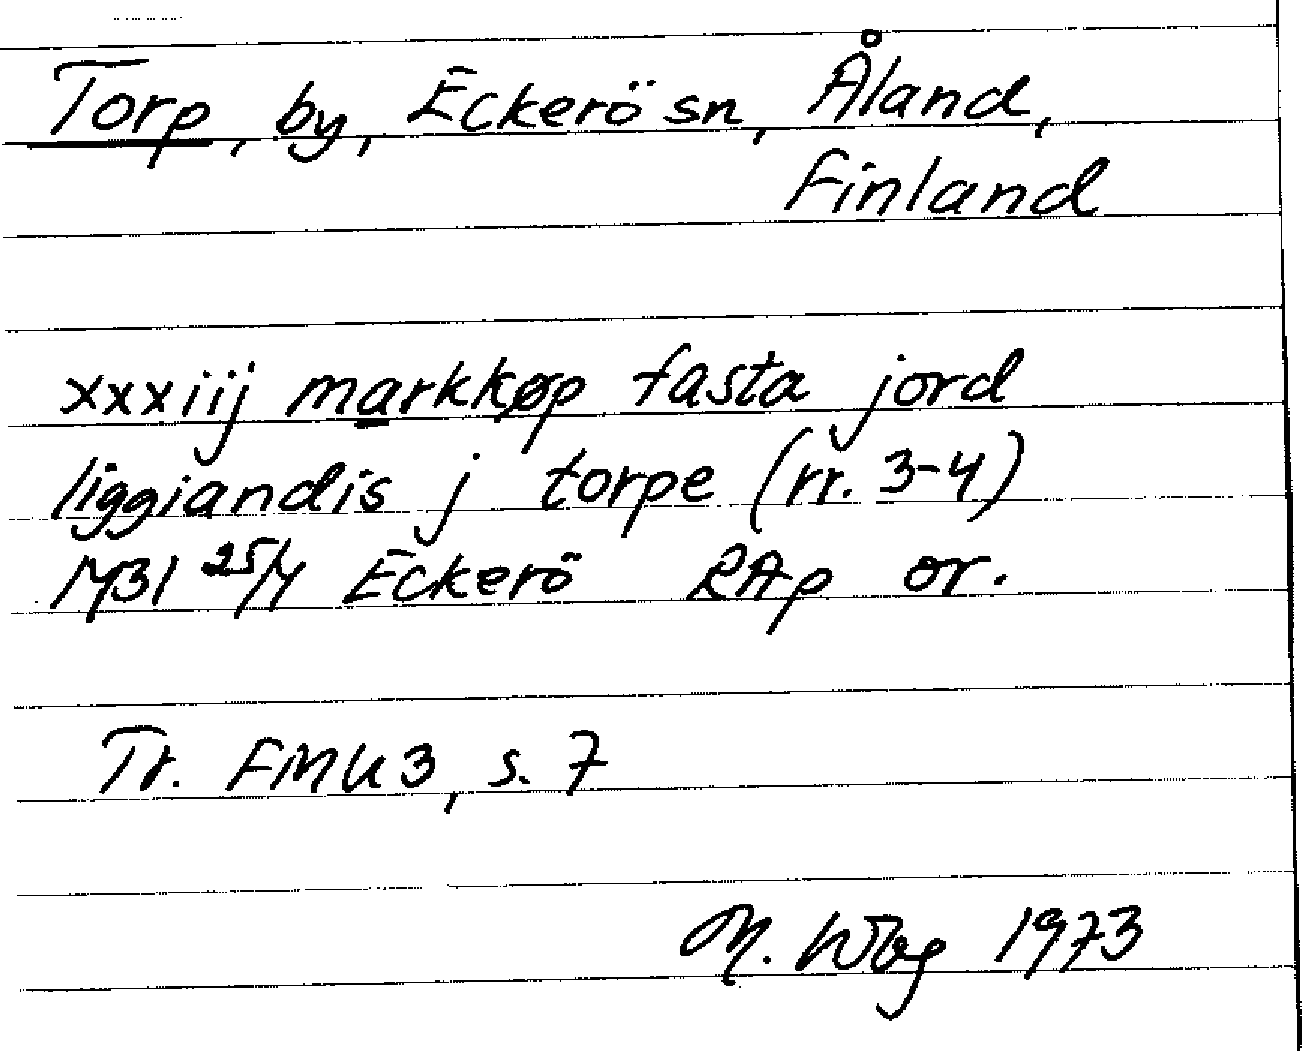 Torp, by, Eckerö sn, Åland,
Finland
xxxiij markkøp fasta jord
liggiandis j torpe (rr. 3-4)
1431 25/4 Eckerö RAp or.
Tr. FMU 3, s. 7
1973